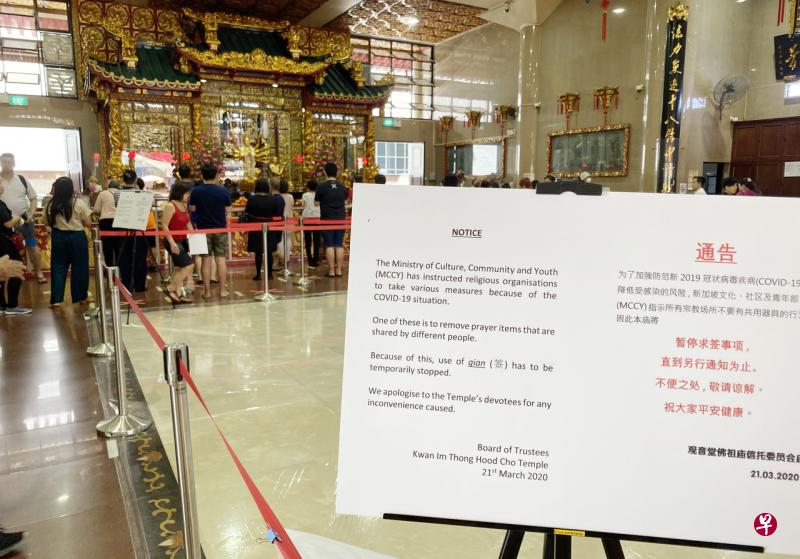 NOTICE
The Ministry of Culture, Community and Youth
(MCCY) has instructed religious organisations
to take various measures because of the
COVID-19 situation.
One of these is to remove prayer items that are
shared by different people.
Because of this, use of qian (签) has to be
temporarily stopped.
We apologise to the Temple's devotees for any
inconvenience caused.
Board of Trustees
Kwan Im Thong Hood Cho Temple
21st March 2020
通告
为了加強防范新 2019 冠状病毒疾病(COVID-19
降低受感染的风险, 新加坡文化、社区及青年部
(MCCY)指示所有宗教场所不要有共用器具的行
因此本庙將
暂停求签事项,
直到另行通知为止。
不便之处, 敬请谅解。
祝大家平安健康。
观音堂佛祖庙信托委员会启
21.03.2020
早
EXIT